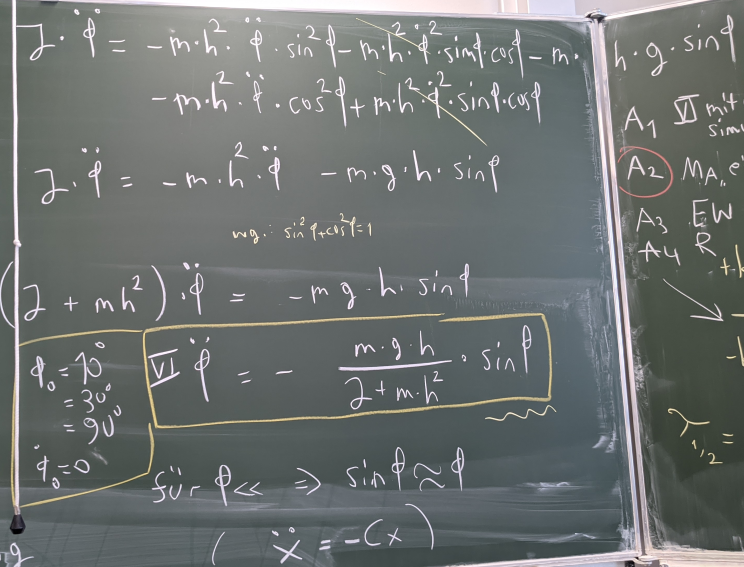 J · φ̈ = -m·h²· φ̈ · sin²φ - m·h²·φ̇²·sinφ·cosφ - m·h·g·sinφ
-m·h²· φ̈ · cos²φ + m·h²·φ̇²·sinφ·cosφ
J · φ̈ = -m·h²·φ̈ - m·g·h·sinφ
wg.: sin²φ+cos²φ=1
(J + mh²)·φ̈ = -mg·h·sinφ
VI φ̈ = - (m·g·h)/(J+m·h²) · sinφ
φ₀ = 10°
= 30°
= 90°
φ̇₀ = 0
für φ<< ⇒ sinφ ≈ φ
( ẍ = -Cx )
A1 VI mit
A2 MA
A3 EW
A4 R
λ₁/₂ =